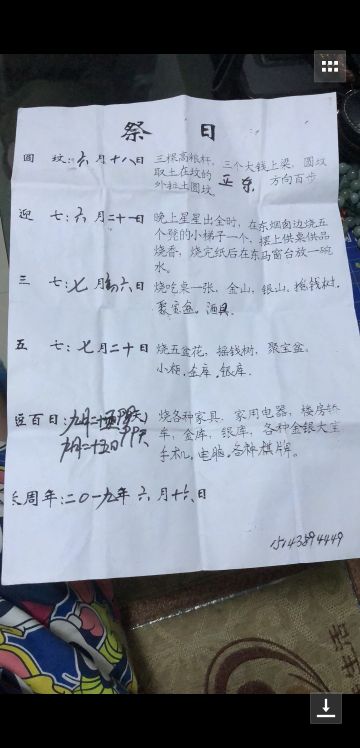 祭 日
圆 坟：六月十八日 三根高粮杆，三个大钱上梁，圆坟
取土在坟的 正东 方向百步
外机土圆坟
迎 七：六月二十一日 晚上星星出全时，在东烟囱边烧五
个凳的小梯子一个，摆上供桌供品
烧香，烧完纸后在东马窗台放一碗
水。
三 七：七月初六日 烧吃桌一张，金山，银山，摇钱树，
聚宝盆，酒具
五 七：七月二十日 烧五盆花，摇钱树，聚宝盆，
小柜，金库，银库。
百日：九月二十五日 烧各种家具，家用电器，楼房轿
九月二十五日 车，金库，银库，各种金银大宝
手机，电脑，各种棋牌。
周年：二0一九年六月十六日
15143894449
生活